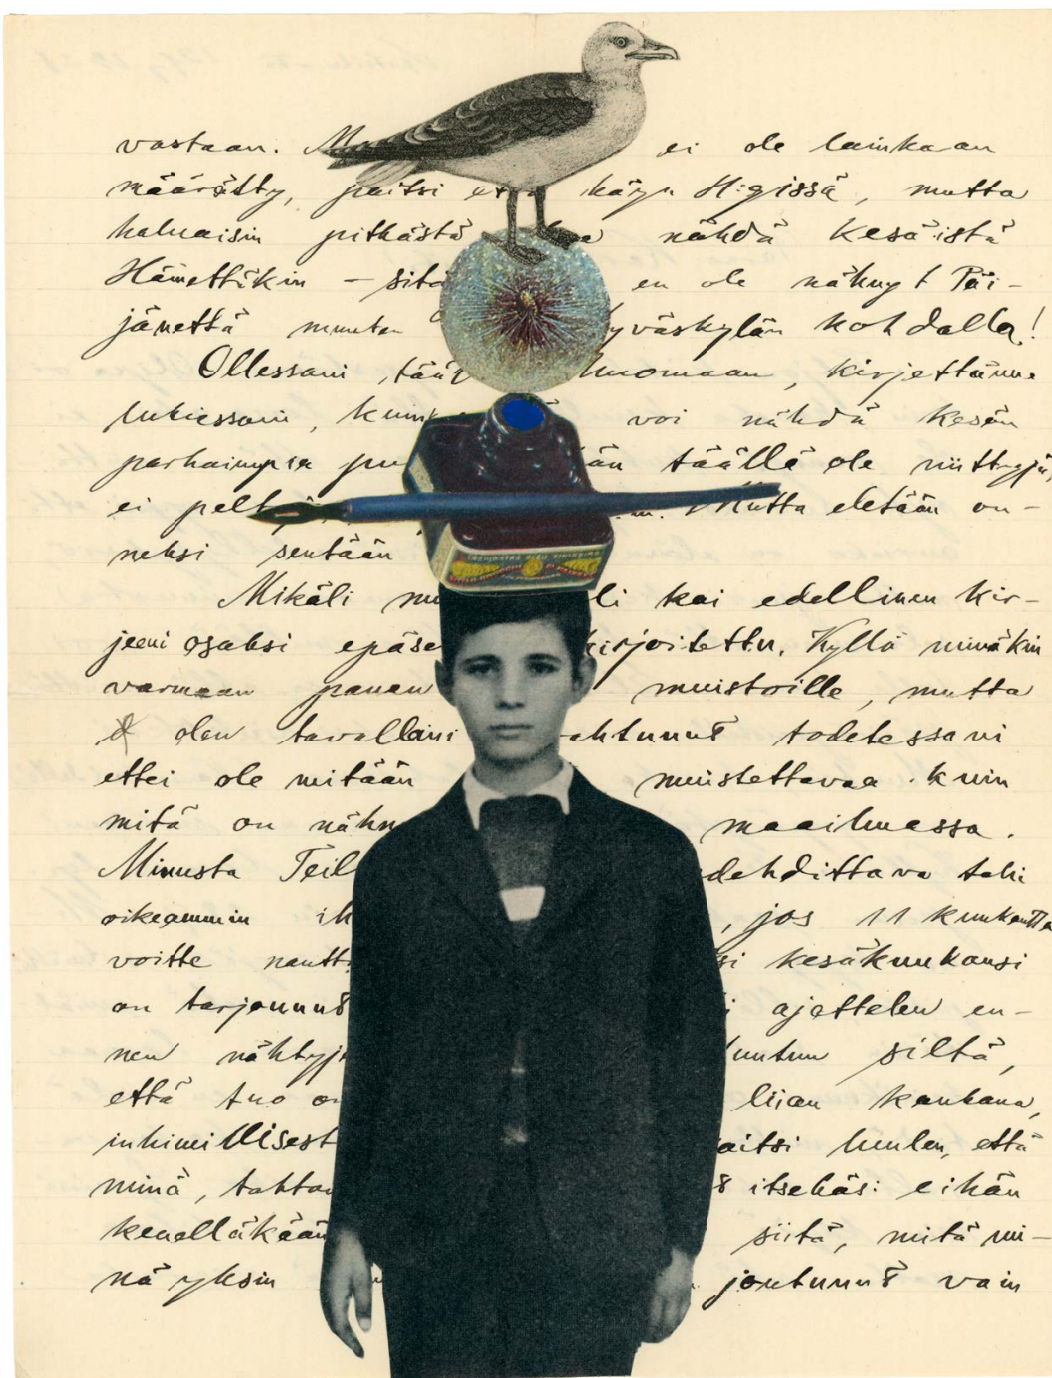 vastaan. ei ole lainkaan
määrätty, paitsi että käyn H:gissä, mutta
haluaisin pitkästä nähdä kesäistä
Hämettäkin – sitä en ole nähnyt Päi-
jännettä muuten yväskylän kohdalla!
Ollessani, tää huomaan, kirjettänne
lukiessani, kuink voi nähdä kesän
parhaimpia pu än täällä ole niittyjä,
ei pelt Mutta eletään on-
neksi sentään
Mikäli mu li kai edellinen kir-
jeeni osaksi epäse kirjoitettu. Kyllä minäkin
varmaan panen muistoille, mutta
olen tavallani ahtunut todetessani
ettei ole mitään muistettavaa kuin
mitä on nähn maailmassa.
Minusta Teil dehdittava tahi
oikeammin ih , jos 11 kuukautta
voitte nautt si kesäkuukausi
on tarjonnut i ajattelen en-
nen nähtyj untuu siltä,
että tuo on liian kaukana,
inhimillisest aitsi luulen, että
minä, tahto itsekäs: eihän
kenelläkään siitä, mitä mi-
nä yksin joutunut vain